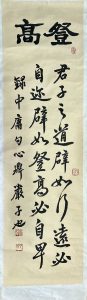 登高
君子之道辟如行遠必
自邇辟如登高必自卑
錄中庸句心舜嚴子也